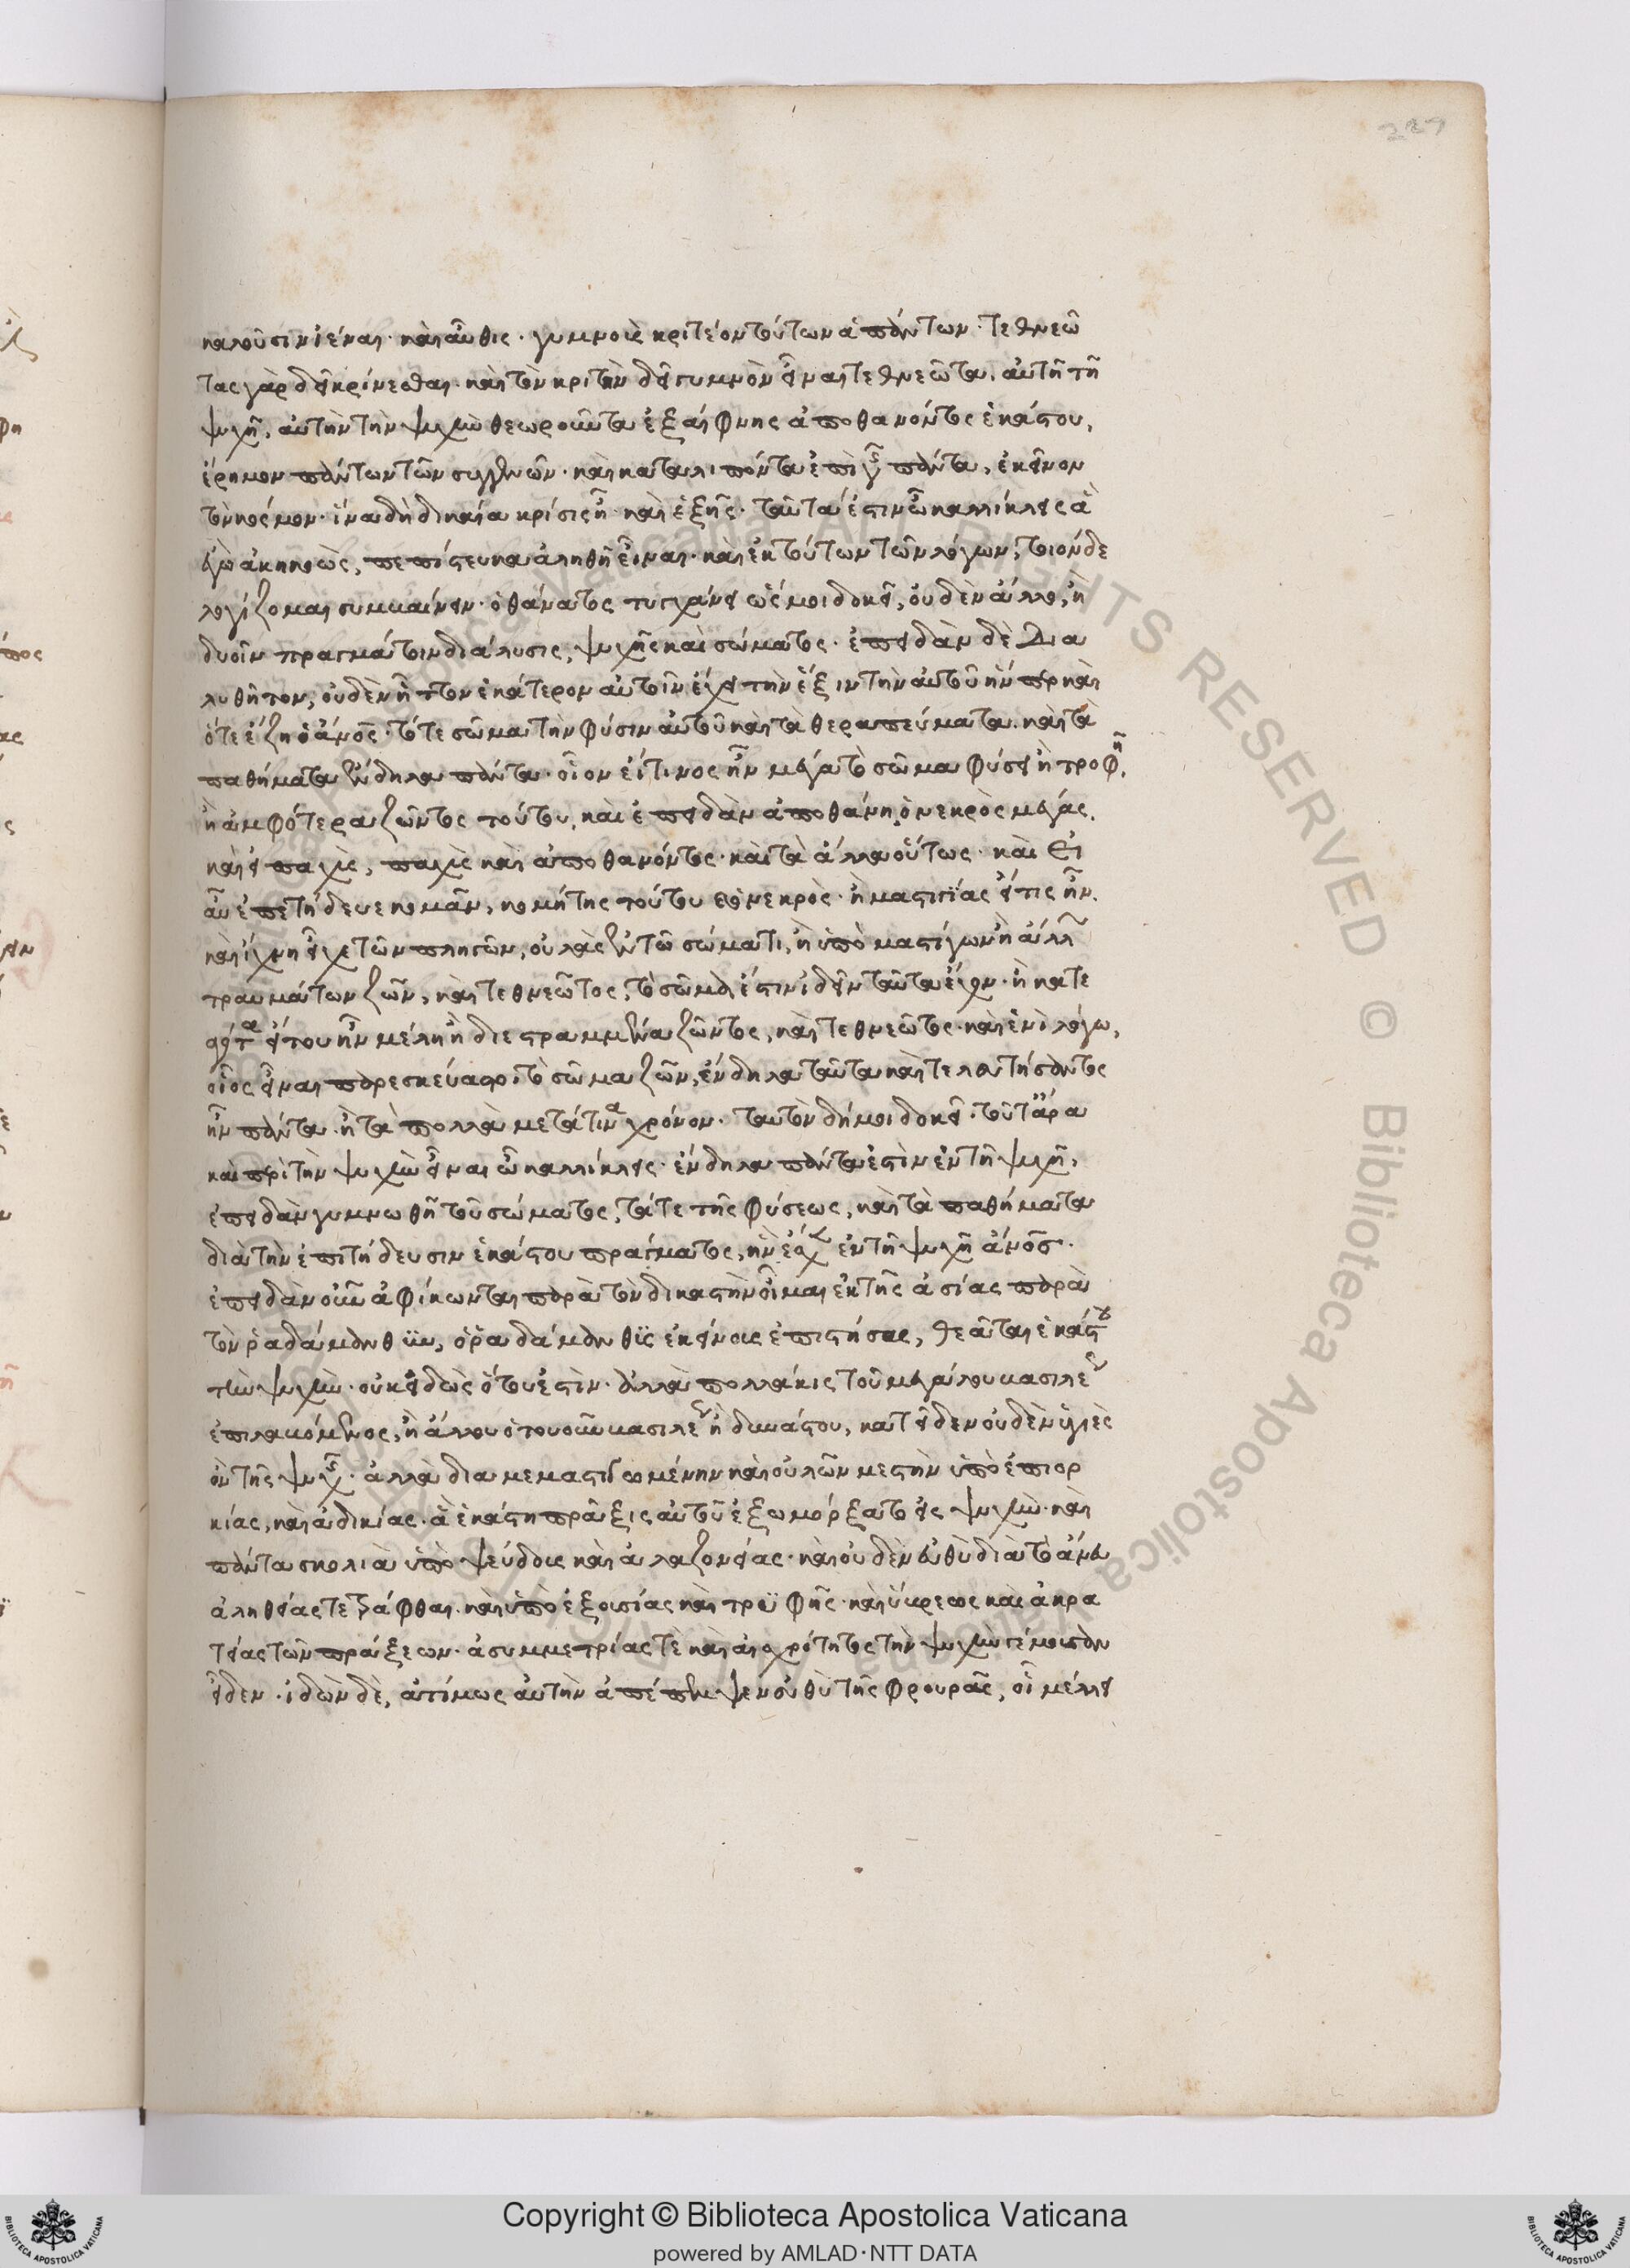 227
καλοῦσιν ἰέναι· καὶ αὖθις· γυμνοὺς κριτέον τούτων ἁπάντων· τεθνεῶ
τας γὰρ δεῖ κρίνεσθαι. καὶ τὸν κριτὴν δεῖ γυμνὸν εἶναι τεθνεῶτα. αὐτῇ τῇ
ψυχῇ, αὐτὴν τὴν ψυχὴν θεωροῦντα ἐξαίφνης ἀποθανόντος ἑκάστου,
ἔρημον πάντων τῶν συγγενῶν· καὶ καταλιπόντα ἐπὶ γῆς πάντα, ἐκεῖνον
τὸν κόσμον· ἵνα δὴ δικαία κρίσις ᾖ· καὶ ἑξῆς· ταῦτα ἐστὶν ὦ καλλίκλεις ἃ
ἐγὼ ἀκηκοὼς, πεπίστευκα ἀληθῆ εἶναι· καὶ ἐκ τούτων τῶν λόγων, τοιόνδε
λογίζομαι συμβαίνειν· ὁ θάνατος τυγχάνει ὡς ἐμοὶ δοκεῖ, οὐδὲν ἄλλο, ἢ
δυοῖν πραγμάτοιν διάλυσις, ψυχῆς καὶ σώματος· ἐπειδὰν δὲ δια
λυθῆτον, οὐδὲν ἧττον ἑκάτερον αὐτοῖν ἔχει τὴν ἕξιν τὴν αὐτοῦ ἥνπερ καὶ
ὅτε ἔζη ὁ ἄνος· τότε σῶμα τὴν φύσιν αὐτοῦ καὶ τὰ θεραπεύματα. καὶ τὰ
παθήματα ἔνδηλα πάντα· οἷον εἴ τινος ἦν μέγα τὸ σῶμα φύσει ἢ τροφῇ,
ἢ ἀμφότερα ζῶντος τούτου, καὶ ἐπειδὰν ἀποθάνῃ, ὁ νεκρὸς μέγας.
καὶ εἰ παχὺς, παχὺς καὶ ἀποθανόντος· καὶ τὰ ἄλλα οὕτως· καὶ εἰ
αὖ ἐπετήδευε κομᾶν, κομήτης τούτου καὶ ὁ νεκρὸς· ἢ μαστιγίας εἴ τις ἦν.
καὶ ἴχνη εἶχε τῶν πληγῶν, οὐλὰς ἐν τῷ σώματι, ἢ ὑπὸ μαστίγων ἢ ἄλλων
τραυμάτων ζῶν, καὶ τεθνεῶτος, τὸ σῶμα ἔστιν ἰδεῖν ταῦτα ἔχον· ἢ κατε
αγότα εἴ του ἦν μέλη ἢ διεστραμμένα ζῶντος, καὶ τεθνεῶτος· καὶ ἑνὶ λόγω,
οἷος εἶναι παρεσκεύαστο τὸ σῶμα ζῶν, ἔνδηλα ταῦτα καὶ τελευτήσαντος
ἦν πάντα. ἢ τὰ πολλὰ μετά τινα χρόνον· ταυτὸν δή μοι δοκεῖ· τοῦτ᾽ ἄρα
καὶ περὶ τὴν ψυχὴν εἶναι ὦ καλλίκλεις· ἔνδηλα πάντα ἐστὶν ἐν τῇ ψυχῇ,
ἐπειδὰν γυμνωθῇ τοῦ σώματος, τά τε τῆς φύσεως, καὶ τὰ παθήματα
διὰ τὴν ἐπιτήδευσιν ἑκάστου πράγματος, ἣν ἔσχεν ἐν τῇ ψυχῇ ἄνος.
ἐπειδὰν οὖν ἀφίκωνται παρὰ τὸν δικαστὴν οἶμαι ἐκ τῆς ἀσίας παρὰ
τὸν ῥαδάμανθυν, ὁ ῥαδάμανθυς ἐκείνους ἐπιστήσας, θεᾶται ἑκάστου
τὴν ψυχὴν· οὐκ εἰδὼς ὅτου ἐστὶν· ἀλλὰ πολλάκις τοῦ μεγάλου βασιλέως
ἐπιλαβόμενος, ἢ ἄλλου ὁτουοῦν βασιλέως ἢ δυνάστου, κατεῖδεν οὐδὲν ὑγιὲς
ὂν τῆς ψυχῆς· ἀλλὰ διαμεμαστιγωμένην καὶ οὐλῶν μεστὴν ὑπὸ ἐπιορ
κίας, καὶ ἀδικίας· ἃ ἑκάστη πρᾶξις αὐτοῦ ἐξωμόρξατο εἰς ψυχὴν· καὶ
πάντα σκολιὰ ὑπὸ ψεύδους καὶ ἀλαζονείας· καὶ οὐδὲν εὐθὺ διὰ τὸ ἄνευ
ἀληθείας τετράφθαι. καὶ ὑπὸ ἐξουσίας καὶ τρυφῆς· καὶ ὕβρεως καὶ ἀκρα
τείας τῶν πράξεων· ἀσυμμετρίας τὲ καὶ αἰσχρότητος τὴν ψυχὴν γέμουσαν
εἶδεν· ἰδὼν δὲ, ἀτίμως αὐτὴν ἀπέπεμψεν εὐθὺ τῆς φρουρᾶς, οἷ μέλλει
Copyright © Biblioteca Apostolica Vaticana
powered by AMLAD·NTT DATA